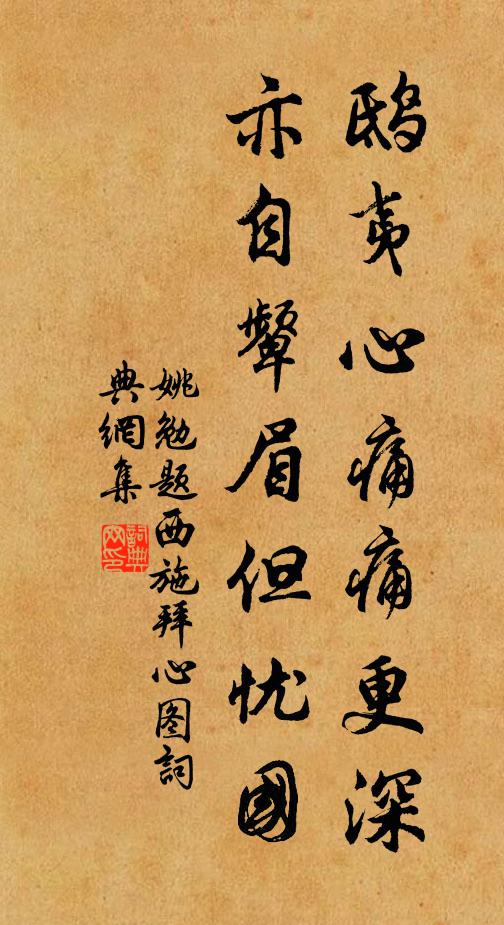 鸱夷心痛痛更深
亦自颦眉但忧國
姚勉题西施拜心图詞
典網集
詞典网印